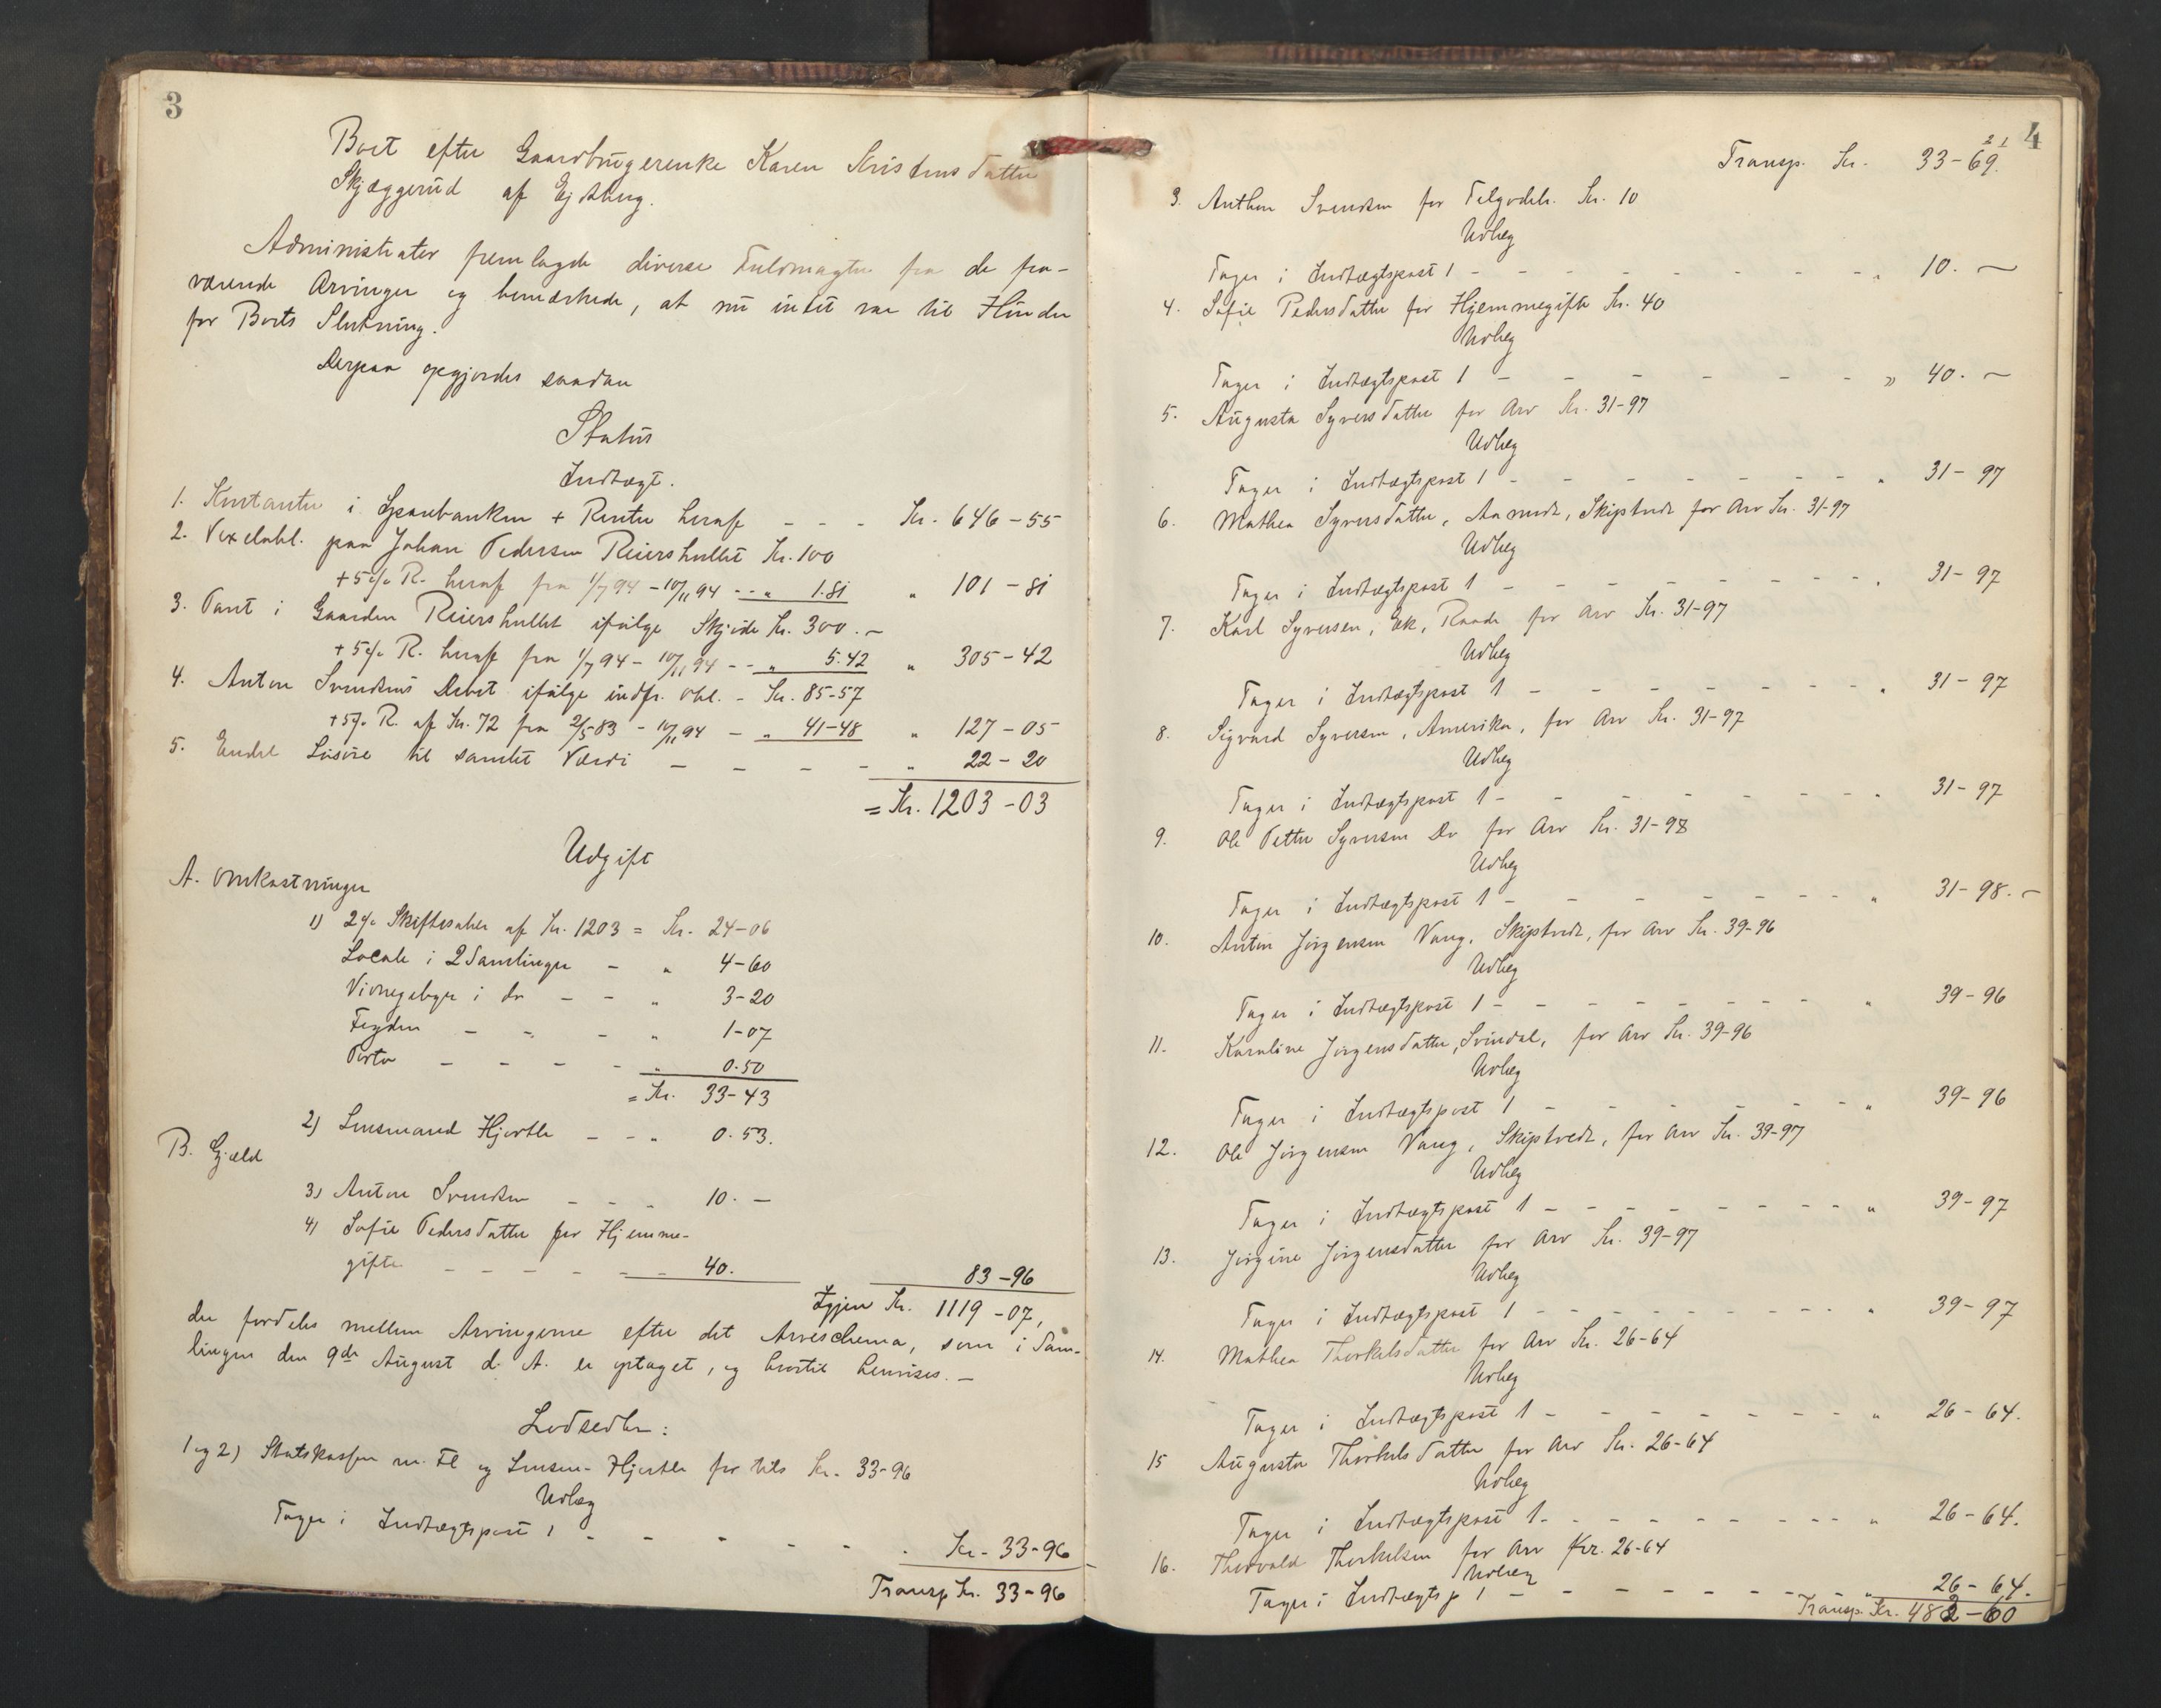 3
Boet efter Gaardbrugerenke Karen Kristensdatter
Skjæggerud af Ejdsberg.
Administrator fremlagde diverse Fuldmagter fra de fra-
værende Arvinger og bemærkede, at nu intet var til Hinder
for Boets Slutning.
Derpaa opgjordes saadan
Status
Indtægt.
1. Kontanter i Sparebanken + Renter heraf - - - Kr. 646-55
2. Vexelobl. paa Johan Pedersen Reiershullet Kr. 100
+ 5% R. heraf fra 1/7 94 - 10/11 94 - - " 1.81 " 101-81
3. Pant i Gaarden Reiershullet ifølge Skjøde Kr. 300.-
+ 5% R. heraf fra 1/7 94 - 10/11 94 - - " 5.42 " 305-42
4. Anton Svendsens Debet ifølge indfr. Obl. - Kr. 85-57
+ 5% R. af Kr. 72 fra 2/5 83 - 10/11 94 - " 41-48 " 127-05
5. Endel Løsøre til samlet Værdi - - - - " 22-20
= Kr. 1203-03
Udgift
A. Omkostninger
1) 2% Skiftesaler af Kr. 1203 = Kr. 24-06
Locale i 2 Samlinger - " 4-60
Vidnegebyr i do - - " 3-20
Fogden - - - " 1-07
Porto - - - - " 0.50
= Kr. 33-43
2) Lensmand Hjorth - - " 0.53.
B. Gjæld
3) Anton Svendsen - - " 10.-
4) Sofie Pedersdatter for Hjemme-
gifte - - - - - - 40. 83-96
Igjen Kr. 1119-07,
der fordeles mellem Arvingerne efter det Arveschema, som i Sam-
lingen den 9de August d. A. er optaget, og hvortil henvises.-
Lodsedler:
1 og 2) Statskassen m. Fl og Lensm. Hjorth for tils Kr. 33-96
Udlæg
Tager i Indtægtspost 1 - - - - - . Kr. 33-96
Transp Kr. 33-96
4
Transp. Kr. 33-69.
21
3. Anthon Svendsen for Tilgodeh. Kr. 10
Udlæg
Tager i Indtægtspost 1 - - - - - - - - " 10. -
4. Sofie Pedersdatter for Hjemmegifte Kr. 40
Udlæg
Tager i Indtægtspost 1 - - - - - - - " 40. -
5. Augusta Syversdatter for Arv Kr. 31-97
Udlæg
Tager i Indtægtspost 1 - - - - - - - - " 31-97
6. Mathea Syversdatter, Aamodt, Skiptvedt for Arv Kr. 31-97
Udlæg
Tager i Indtægtspost 1 - - - - - - - - - " 31-97
7. Karl Syversen, Ek, Raade for Arv Kr. 31-97
Udlæg
Tager i Indtægtspost 1 - - - - - - - - " 31-97
8. Sigvard Syversen, Amerika, for Arv Kr. 31-97
Udlæg
Tager i Indtægtspost 1 - - - - - - - - " 31-97
9. Ole Petter Syversen Do for Arv Kr. 31-98
Udlæg
Tager i Indtægtspost 1 - - - - - - - - " 31-98.-
10. Anton Jørgensen Vang, Skiptvedt, for Arv Kr. 39-96
Udlæg
Tager i Indtægtspost 1 - - - - - - - - - " 39-96
11. Karoline Jørgensdatter, Svindal, for Arv Kr. 39-96
Udlæg
Tager i Indtægtspost 1 - - - - - - - " 39-96
12. Ole Jørgensen Vang, Skiptvedt, for Arv Kr. 39-97
Udlæg
Tager i Indtægtspost 1 - - - - - - - - - " 39-97
13. Jørgine Jørgensdatter for Arv Kr. 39-97
Udlæg
Tager i Indtægtspost 1 - - - - - - - - - - " 39-97
14. Mathea Thorkelsdatter for Arv Kr. 26-64
Udlæg
Tager i Indtægtspost 1 - - - - - - - - " 26-64.
15 Augusta Thorkelsdatter for Arv Kr. 26-64
Udlæg
Tager i Indtægtspost 1. - - - - - - - - - " 26-64.
16. Thorvald Thorkelsen for Arv Kr. 26-64
Udlæg
Tager i Indtægtsp 1 - - - - - - - - - " 26-64.
Transp. Kr. 482-60